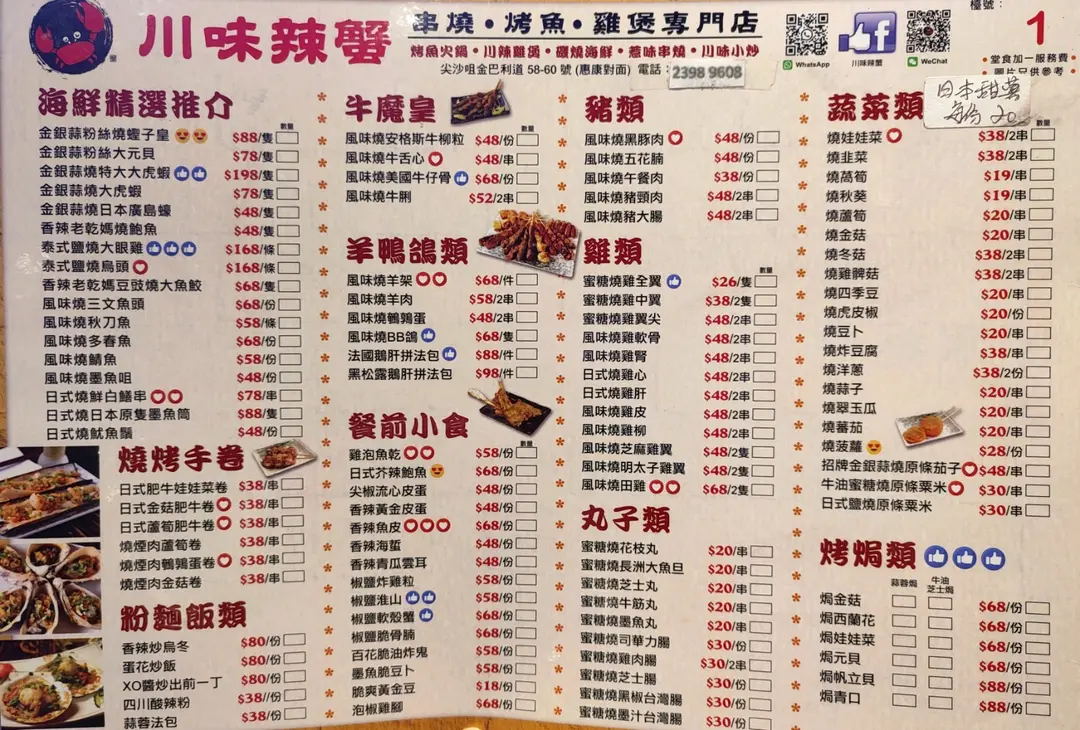 川味辣蟹
串燒・烤魚・雞煲專門店
烤魚火鍋・川辣雞煲・磯燒海鮮・惹味串燒・川味小炒
尖沙咀金巴利道 58-60 號 (惠康對面) 電話：2398 9608
WhatsApp
川味辣蟹
WeChat
檯號：
1
・堂食加一服務費・
・圖片只供參考・
海鮮精選推介
數量
金銀蒜粉絲燒蟶子皇 $88/隻
金銀蒜粉絲大元貝 $78/隻
金銀蒜燒特大大虎蝦 $198/隻
金銀蒜燒大虎蝦 $78/隻
金銀蒜燒日本廣島蠔 $48/隻
香辣老乾媽燒鮑魚 $48/隻
泰式鹽燒大眼雞 $168/條
泰式鹽燒烏頭 $168/條
香辣老乾媽豆豉燒大魚鮫 $68/隻
風味燒三文魚頭 $68/份
風味燒秋刀魚 $58/條
風味燒多春魚 $68/份
風味燒鯖魚 $58/份
風味燒墨魚咀 $48/份
日式燒鮮白鱔串 $78/串
日式燒日本原隻墨魚筒 $88/隻
日式燒魷魚鬚 $48/份
燒烤手卷
日式肥牛娃娃菜卷 $38/串
日式金菇肥牛卷 $38/串
日式蘆筍肥牛卷 $38/串
燒煙肉蘆筍卷 $38/串
燒煙肉鵪鶉蛋卷 $38/串
燒煙肉金菇卷 $38/串
粉麵飯類
香辣炒烏冬 $80/份
蛋花炒飯 $80/份
XO醬炒出前一丁 $80/份
四川酸辣粉 $38//份
蒜蓉法包 $38/份
牛魔皇
數量
風味燒安格斯牛柳粒 $48/份
風味燒牛舌心 $48/串
風味燒美國牛仔骨 $68/份
風味燒牛脷 $52/2串
羊鴨鴿類
風味燒羊架 $68/件
風味燒羊肉 $58/2串
風味燒鵪鶉蛋 $48/2串
風味燒BB鴿 $68/隻
法國鵝肝拼法包 $88/件
黑松露鵝肝拼法包 $98/件
餐前小食
數量
雞泡魚乾 $58/份
日式芥辣鮑魚 $68/份
尖椒流心皮蛋 $48/份
香辣黃金皮蛋 $48/份
香辣魚皮 $68/份
香辣海蜇 $48/份
香辣青瓜雲耳 $48/份
椒鹽炸雞粒 $58/份
椒鹽淮山 $58/份
椒鹽軟殼蟹 $68/份
椒鹽脆骨腩 $68/份
百花脆油炸鬼 $58/份
墨魚脆豆卜 $58/份
脆爽黃金豆 $18/份
泡椒雞腳 $68/份
豬類
風味燒黑豚肉 $48/份
風味燒五花腩 $48/份
風味燒午餐肉 $38/份
風味燒豬頸肉 $48/2串
風味燒豬大腸 $48/2串
雞類
數量
蜜糖燒雞全翼 $26/隻
蜜糖燒雞中翼 $38/2隻
蜜糖燒雞翼尖 $48/2串
風味燒雞軟骨 $48/2串
風味燒雞腎 $48/2串
日式燒雞心 $48/2串
日式燒雞肝 $48/2串
風味燒雞皮 $48/2串
風味燒雞柳 $48/2串
風味燒芝麻雞翼 $48/2隻
風味燒明太子雞翼 $48/2隻
風味燒田雞 $68/2隻
丸子類
蜜糖燒花枝丸 $20/串
蜜糖燒長洲大魚旦 $20/串
蜜糖燒芝士丸 $20/串
蜜糖燒牛筋丸 $20/串
蜜糖燒墨魚丸 $20/串
蜜糖燒司華力腸 $30/份
蜜糖燒雞肉腸 $30/2串
蜜糖燒芝士腸 $30/份
蜜糖燒黑椒台灣腸 $30/份
蜜糖燒墨汁台灣腸 $30/份
蔬菜類
日本甜薯
每份 20
數量
燒娃娃菜 $38/2串
燒韭菜 $38/2串
燒萵筍 $19/串
燒秋葵 $19/串
燒蘆筍 $20/串
燒金菇 $20/串
燒冬菇 $38/2串
燒雞髀菇 $38/2串
燒四季豆 $20/串
燒虎皮椒 $20/份
燒豆卜 $20/串
燒炸豆腐 $38/串
燒洋蔥 $38/2份
燒蒜子 $20/串
燒翠玉瓜 $20/串
燒蕃茄 $20/串
燒菠蘿 $28/份
招牌金銀蒜燒原條茄子 $48/串
牛油蜜糖燒原條粟米 $30/串
日式鹽燒原條粟米 $30/串
烤焗類
蒜蓉焗
牛油
芝士焗
焗金菇 $68/份
焗西蘭花 $68/份
焗娃娃菜 $68/份
焗元貝 $68/份
焗帆立貝 $88/份
焗青口 $88/份